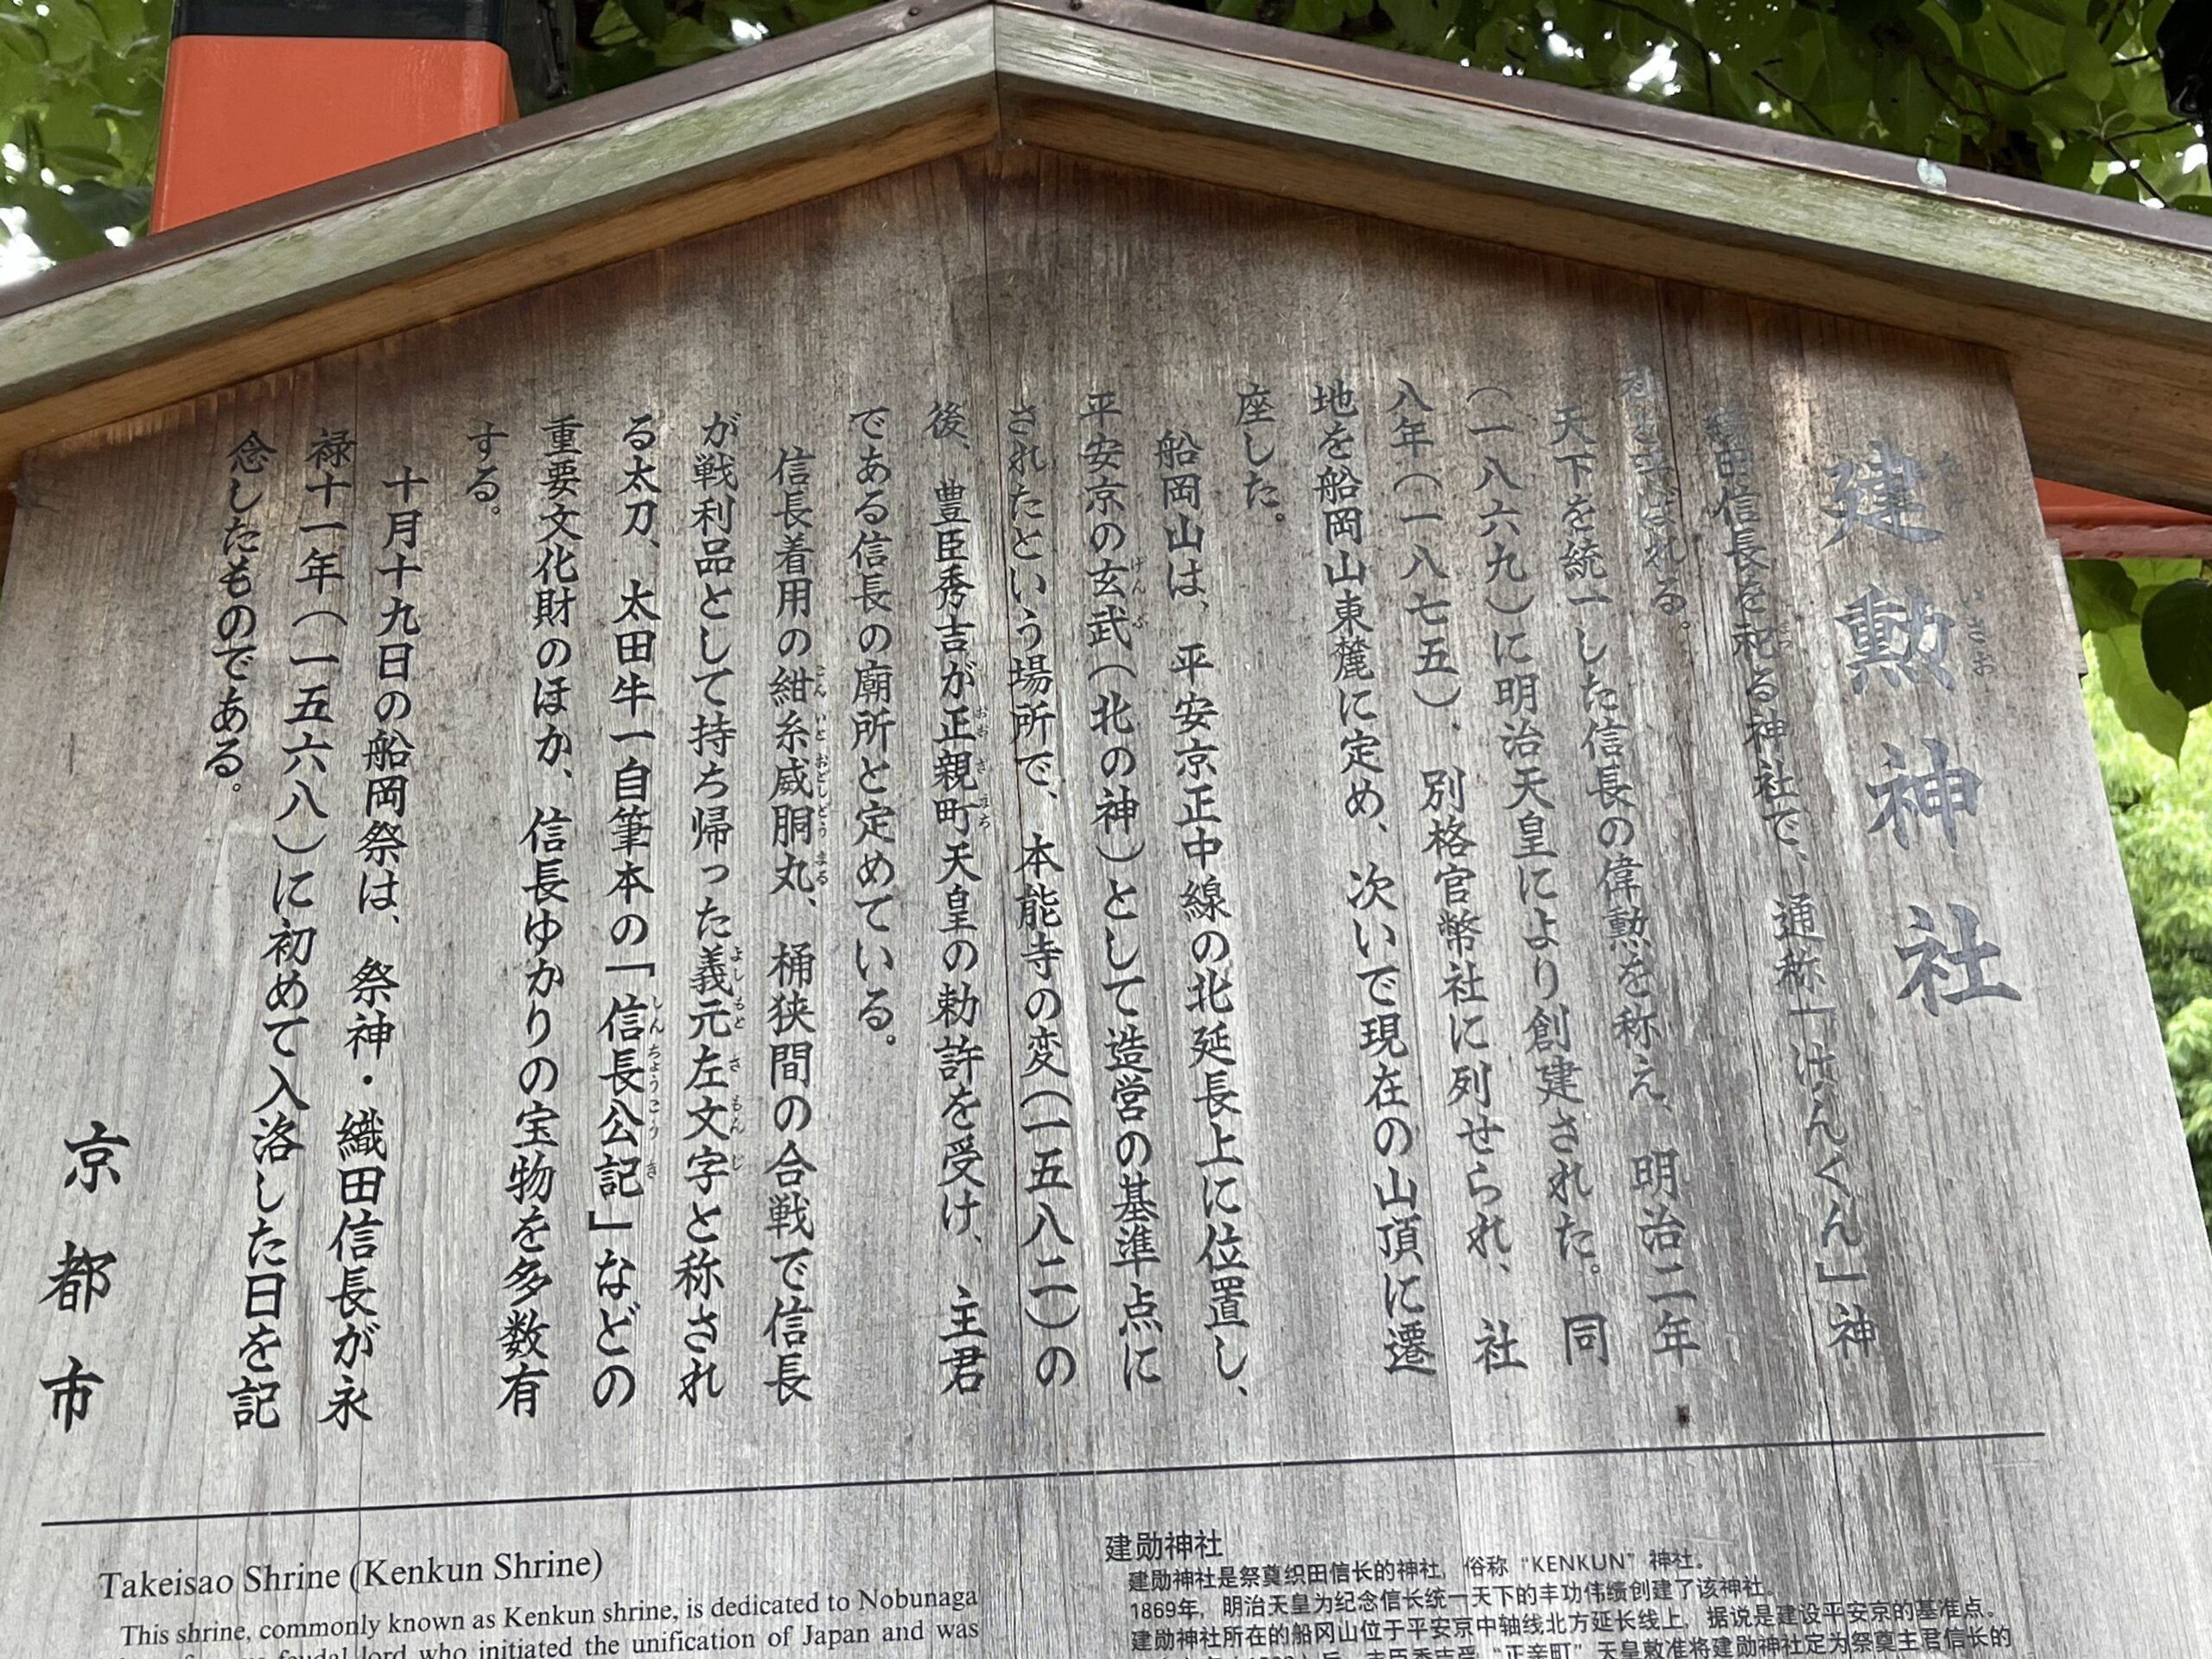 建勲神社
織田信長を祀る神社で、通称「けんくん」神
社と呼ばれる。
天下を統一した信長の偉勲を称え、明治二年
（一八六九）に明治天皇により創建された。同
八年（一八七五）、別格官幣社に列せられ、社
地を船岡山東麓に定め、次いで現在の山頂に遷
座した。
船岡山は、平安京正中線の北延長上に位置し、
平安京の玄武（北の神）として造営の基準点に
されたという場所で、本能寺の変（一五八二）の
後、豊臣秀吉が正親町天皇の勅許を受け、主君
である信長の廟所と定めている。
信長着用の紺糸威胴丸、桶狭間の合戦で信長
が戦利品として持ち帰った義元左文字と称され
る太刀、太田牛一自筆本の「信長公記」などの
重要文化財のほか、信長ゆかりの宝物を多数有
する。
十月十九日の船岡祭は、祭神・織田信長が永
禄十一年（一五六八）に初めて入洛した日を記
念したものである。
京都市
Takeisao Shrine (Kenkun Shrine)
This shrine, commonly known as Kenkun shrine, is dedicated to Nobunaga
feudal lord who initiated the unification of Japan and was
建勋神社
建勋神社是祭奠织田信长的神社，俗称“KENKUN”神社。
1869年，明治天皇为纪念信长统一天下的丰功伟绩创建了该神社。
建勋神社所在的船冈山位于平安京中轴线北方延长线上，据说是建设平安京的基准点。
“正亲町”天皇敕准将建勋神社定为祭奠主君信长的